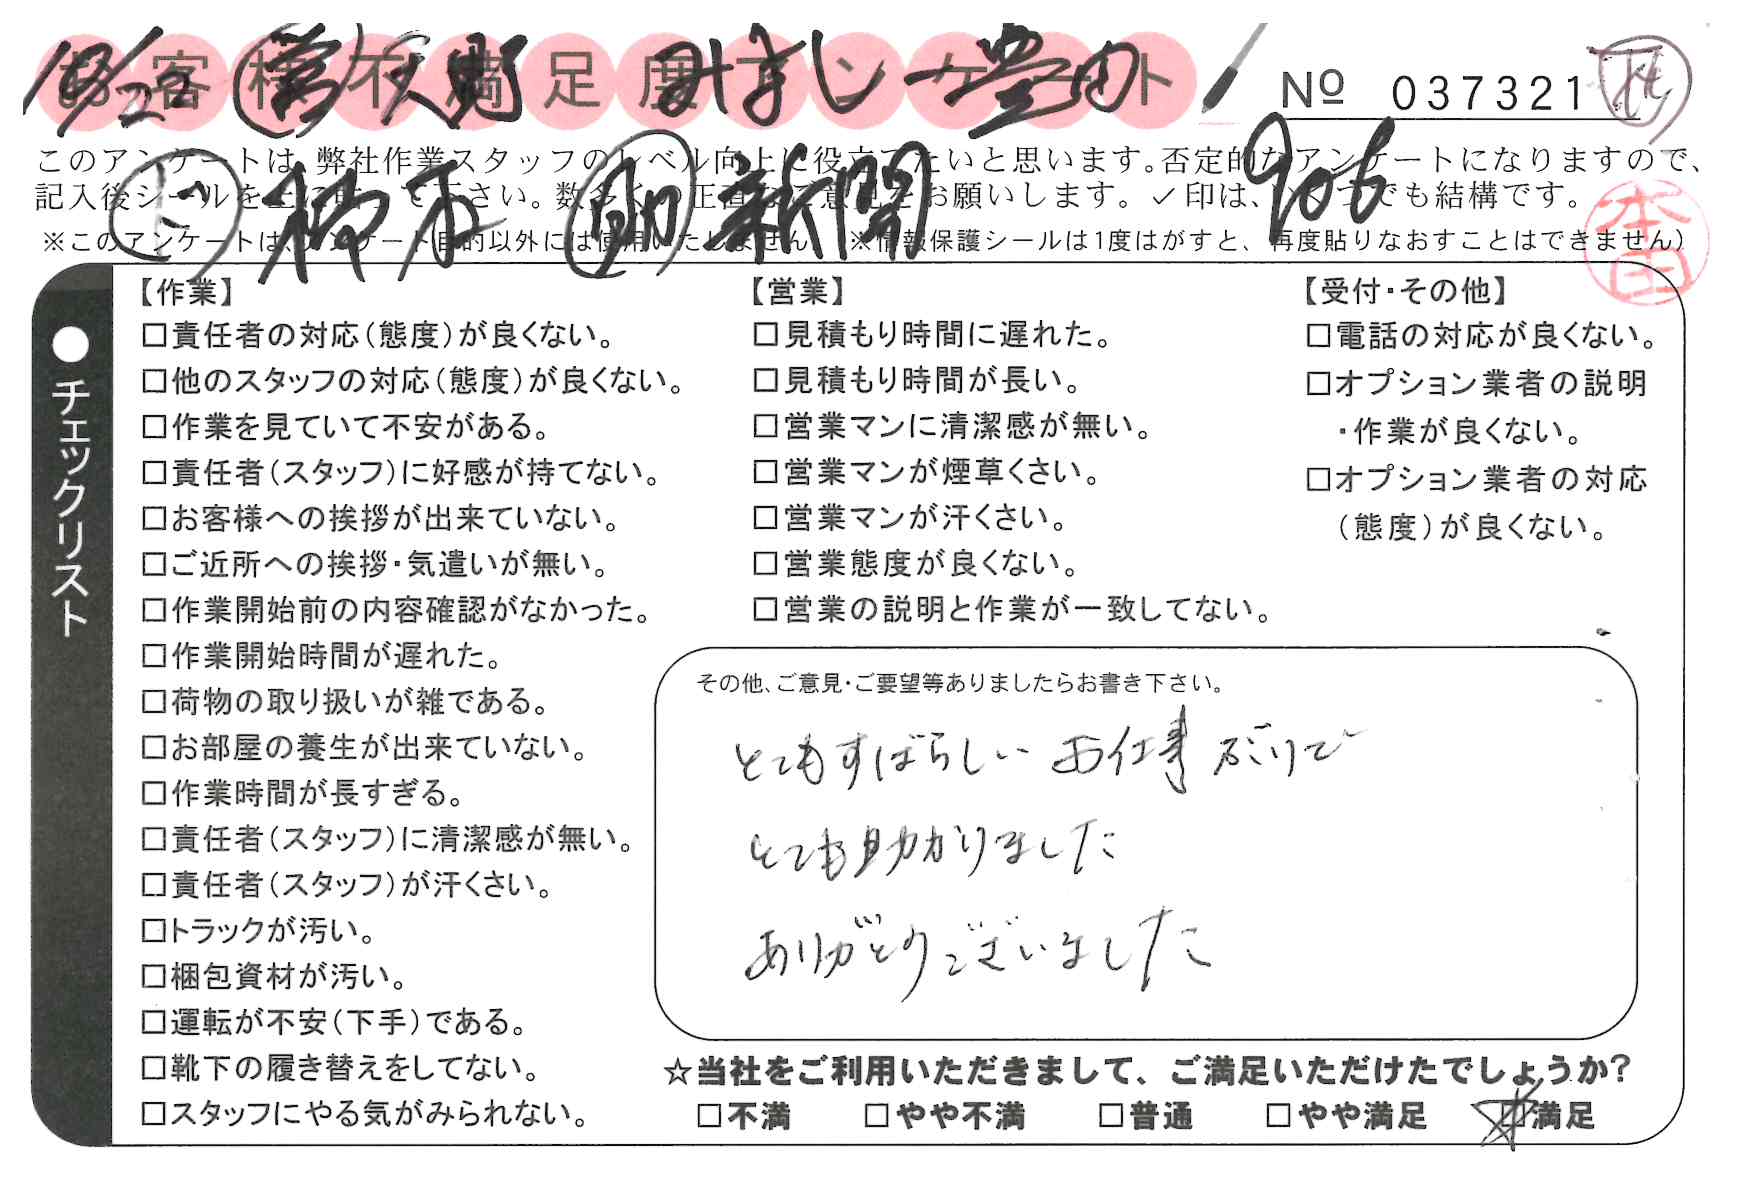 お客様不満足度アンケート
№ 037321
906
このアンケートは、弊社作業スタッフのレベル向上に役立てたいと思います。否定的なアンケートになりますので、
記入後シールを上に貼って下さい。数多くの正直なご意見をお願いします。✓印は、いくつでも結構です。
※このアンケートは、アンケート目的以外には使用いたしません。(※情報保護シールは1度はがすと、再度貼りなおすことはできません)
本田
●チェックリスト
【作業】
□責任者の対応(態度)が良くない。
□他のスタッフの対応(態度)が良くない。
□作業を見ていて不安がある。
□責任者(スタッフ)に好感が持てない。
□お客様への挨拶が出来ていない。
□ご近所への挨拶・気遣いが無い。
□作業開始前の内容確認がなかった。
□作業開始時間が遅れた。
□荷物の取り扱いが雑である。
□お部屋の養生が出来ていない。
□作業時間が長すぎる。
□責任者(スタッフ)に清潔感が無い。
□責任者(スタッフ)が汗くさい。
□トラックが汚い。
□梱包資材が汚い。
□運転が不安(下手)である。
□靴下の履き替えをしてない。
□スタッフにやる気がみられない。
【営業】
□見積もり時間に遅れた。
□見積もり時間が長い。
□営業マンに清潔感が無い。
□営業マンが煙草くさい。
□営業マンが汗くさい。
□営業態度が良くない。
□営業の説明と作業が一致してない。
【受付・その他】
□電話の対応が良くない。
□オプション業者の説明
・作業が良くない。
□オプション業者の対応
(態度)が良くない。
その他、ご意見・ご要望等ありましたらお書き下さい。
とてもすばらしいお仕事ぶりで
とても助かりました
ありがとうございました
☆当社をご利用いただきまして、ご満足いただけたでしょうか?
□不満 □やや不満 □普通 □やや満足 □満足